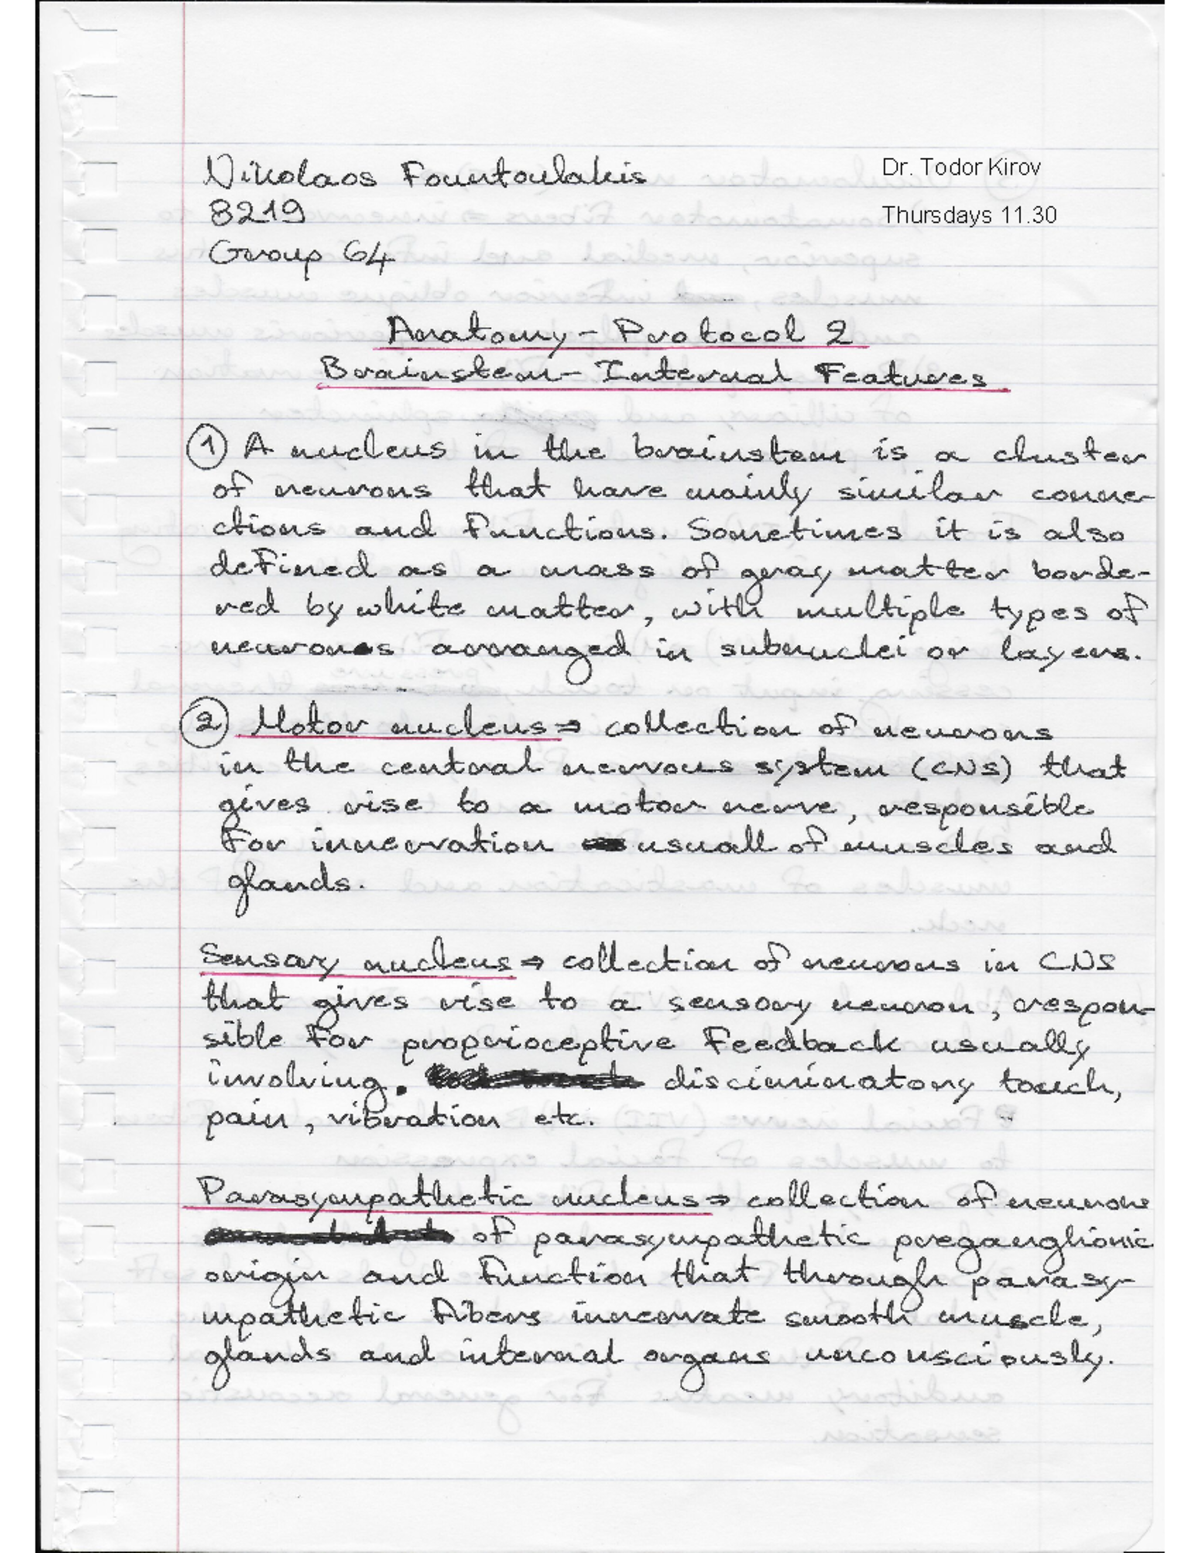 Nikolaos Fountoulakis
Dr. Todor Kirov
8219
Thursdays 11.30
Group 64
Anatomy - Protocol 2
Brainstem - Internal Features
① A nucleus in the brainstem is a cluster
of neurons that have mainly similar conne-
ctions and functions. Sometimes it is also
defined as a mass of gray matter borde-
red by white matter, with multiple types of
neurons arranged in subnuclei or layers.
② Motor nucleus ⇒ collection of neurons
in the central nervous system (CNS) that
gives rise to a motor nerve, responsible
for innervation usuall of muscles and
glands.
Sensory nucleus ⇒ collection of neurons in CNS
that gives rise to a sensory neuron, respon-
sible for proprioceptive feedback usually
involving. discriminatory touch,
pain, vibration etc.
Parasympathetic nucleus ⇒ collection of neurons
of parasympathetic preganglionic
origin and function that through parasy-
mpathetic fibers innervate smooth muscle,
glands and internal organs unconsciously.